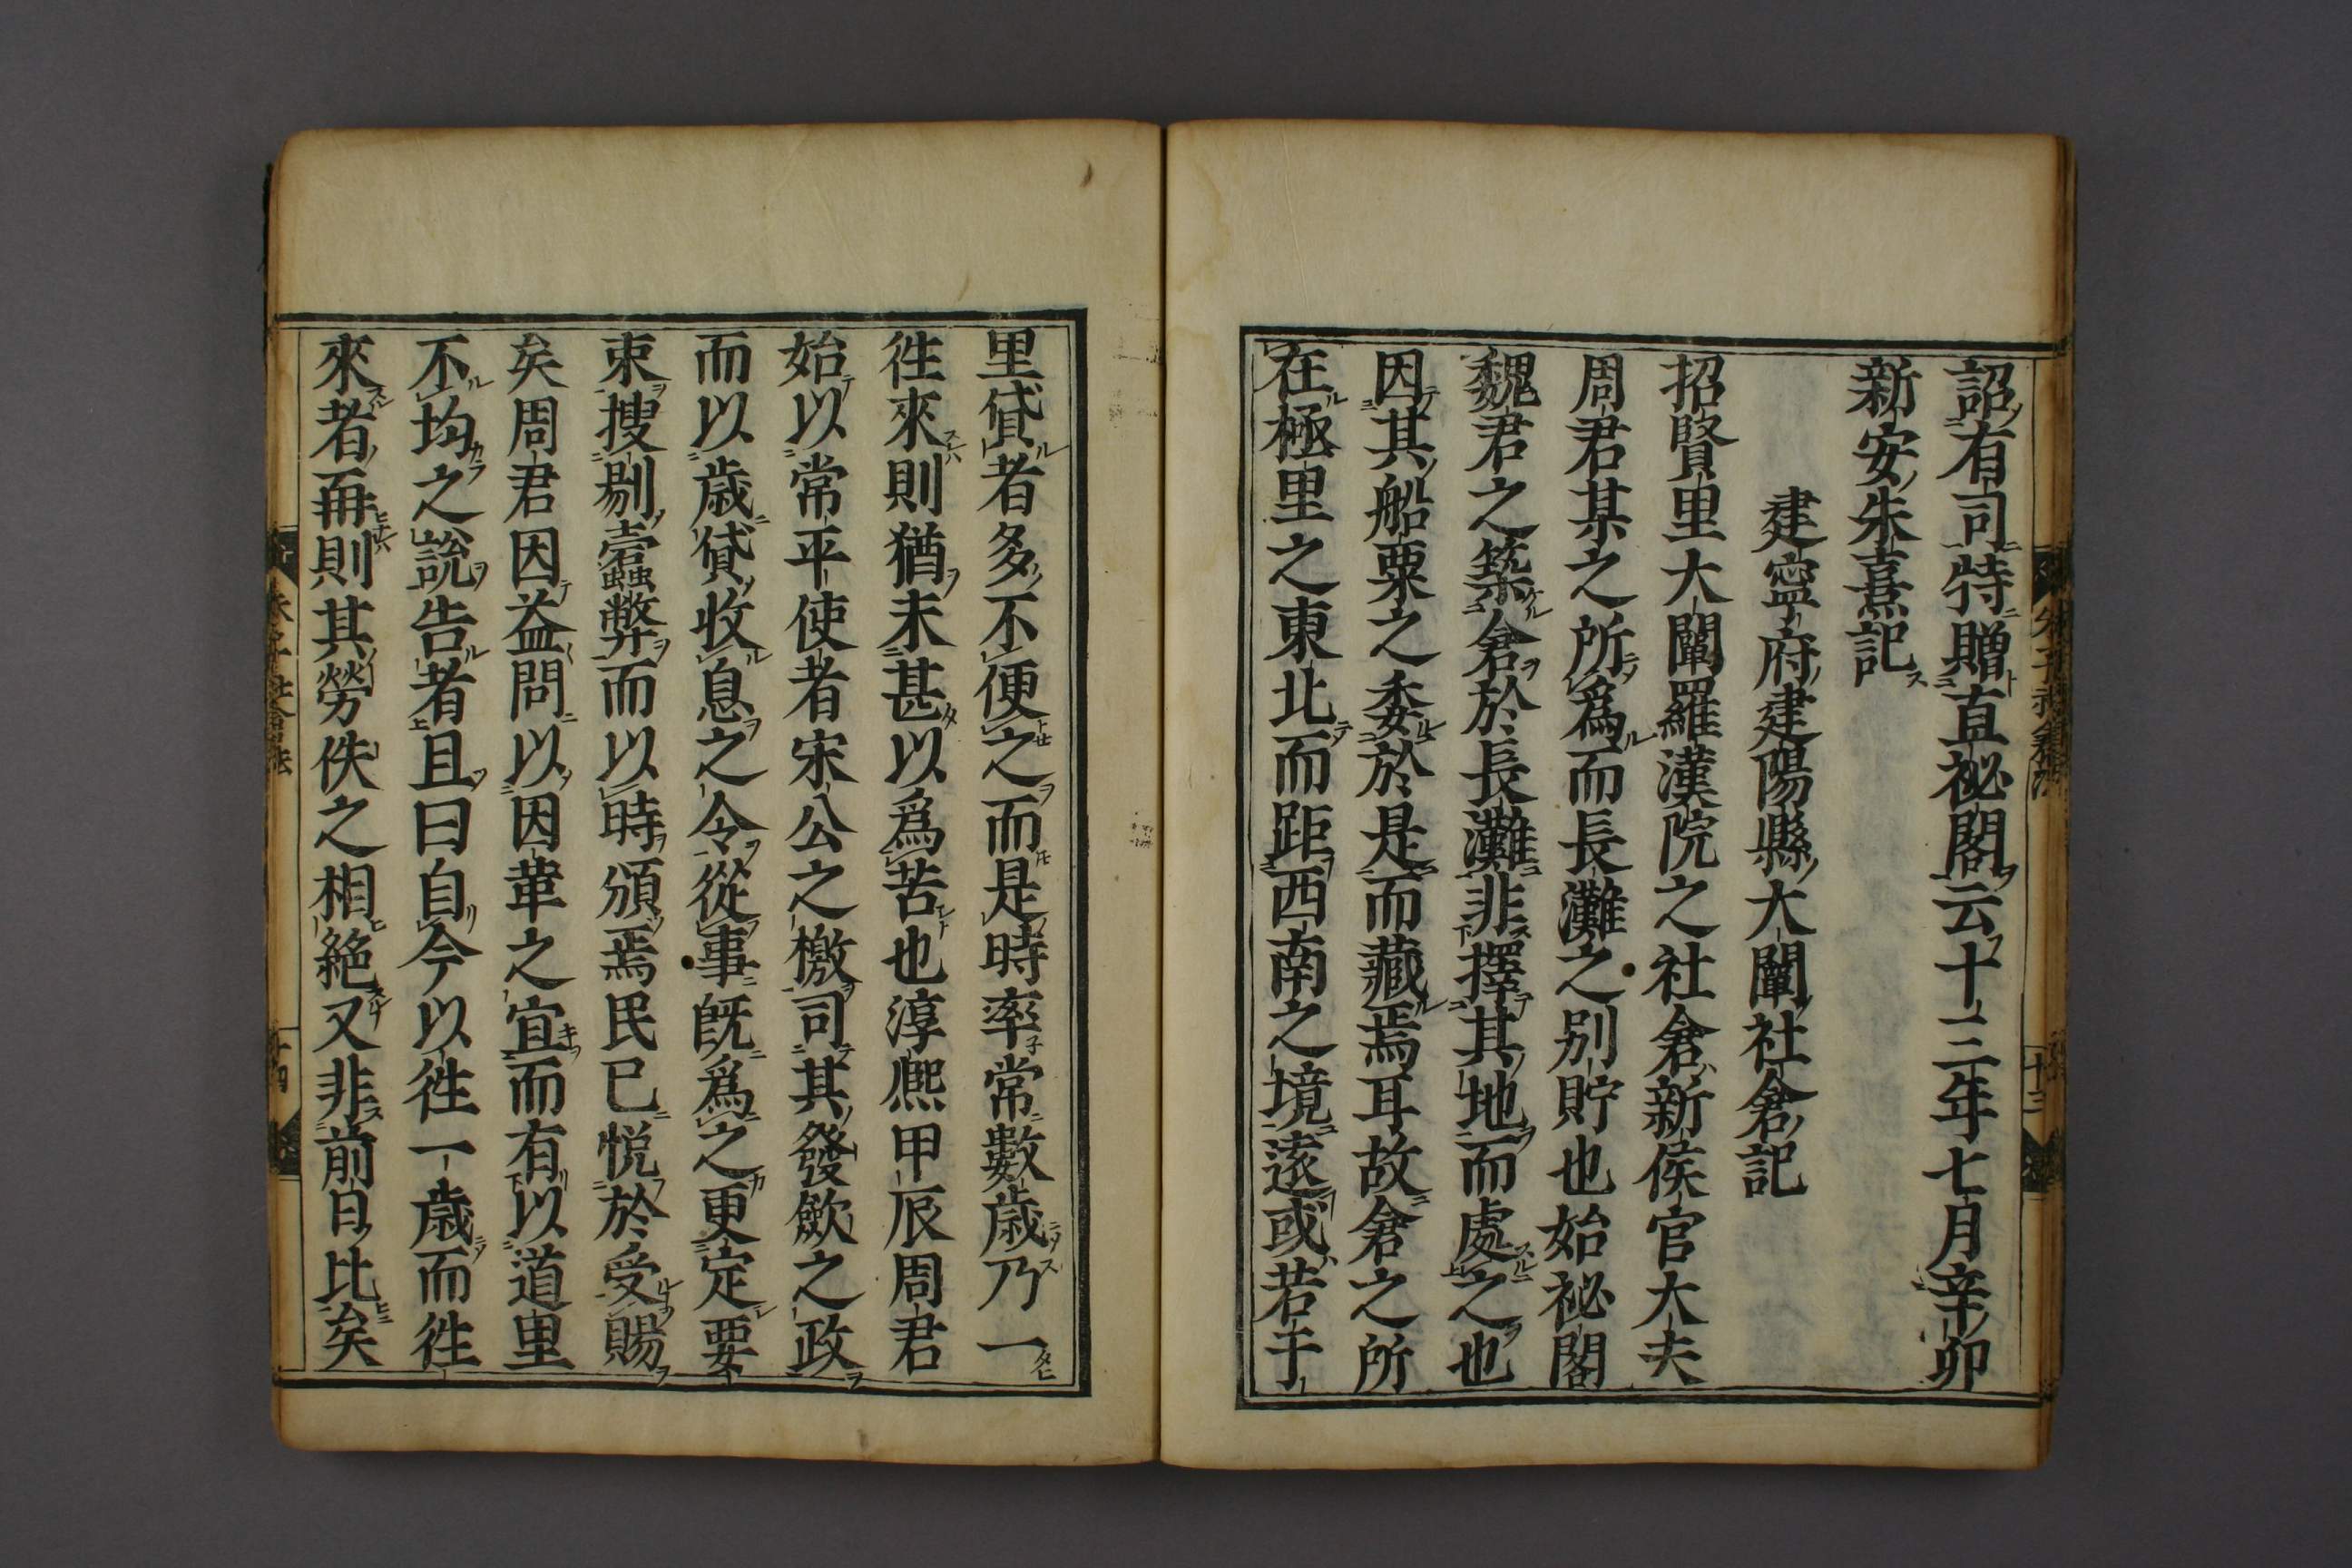 詔有司特贈直祕閣云十三年七月辛卯
新安朱熹記
建寧府建陽縣大闡社倉記
招賢里大闡羅漢院之社倉新侯官大夫
周君某之所爲而長灘之別貯也始祕閣
魏君之築倉於長灘非擇其地而處之也
因其船粟之委於是而藏焉耳故倉之所
在極里之東北而距西南之境遠或若干
里貸者多不便之而是時率常數歲乃一
徃來則猶未甚以爲苦也淳熙甲辰周君
始以常平使者宋公之檄司其發斂之政
而以歲貸收息之令從事旣爲之更定要
束搜剔蠧弊而以時頒焉民已悅於受賜
矣周君因益問以因革之宜而有以道里
不均之說告者且曰自今以徃一歲而徃
來者再則其勞佚之相絕又非前日比矣
朱子社倉法
十三
朱子社倉法
十四